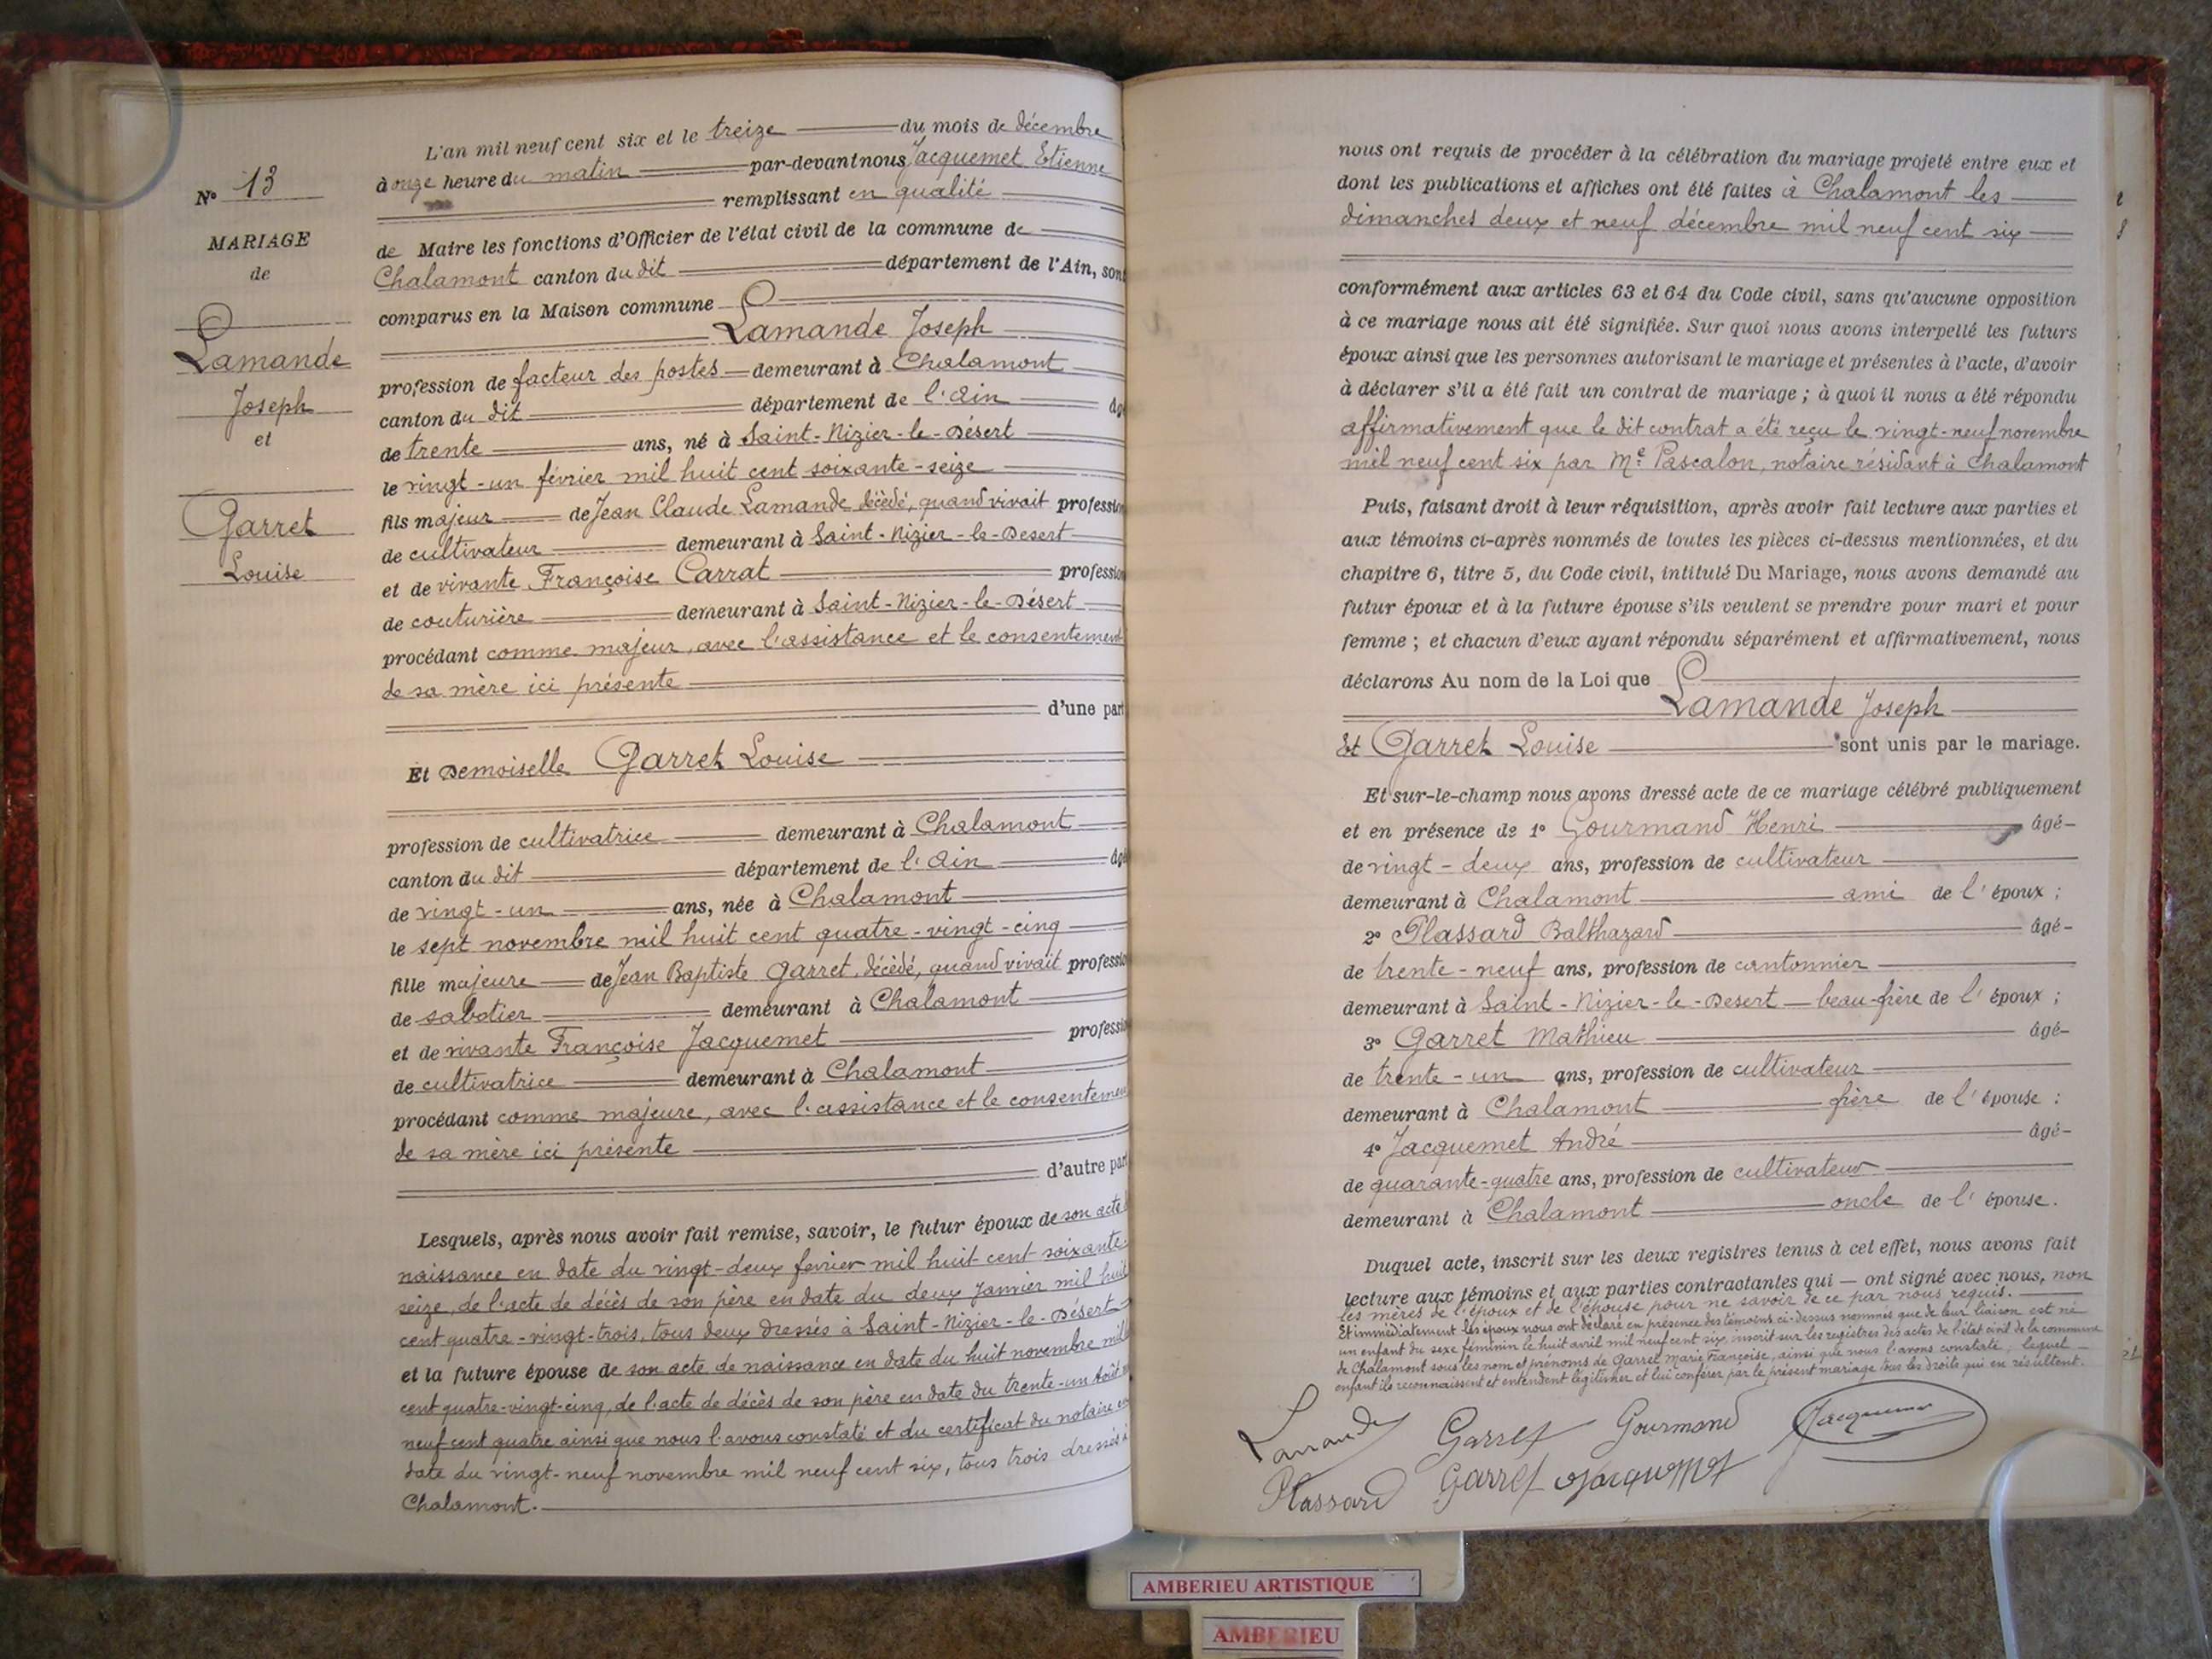 N° 13
MARIAGE
de
Lamande
Joseph
et
Garret
Louise
L'an mil neuf cent six et le treize du mois de décembre
à onze heure du matin par-devant nous Jacquemet Etienne
remplissant en qualité
de Maire les fonctions d'Officier de l'état civil de la commune de
Chalamont canton du dit département de l'Ain, sont
comparus en la Maison commune
Lamande Joseph
profession de facteur des postes demeurant à Chalamont
canton du dit département de l'Ain âgé
de trente ans, né à Saint-Nizier-le-Désert
le vingt-un février mil huit cent soixante-seize
fils majeur de Jean Claude Lamande décédé, quand vivait profession
de cultivateur demeurant à Saint-Nizier-le-Desert
et de vivante Françoise Carrat profession
de couturière demeurant à Saint-Nizier-le-Désert
procédant comme majeur, avec l'assistance et le consentement
de sa mère ici présente
d'une part
Et Demoiselle Garret Louise
profession de cultivatrice demeurant à Chalamont
canton du dit département de l'Ain âgé
de vingt-un ans, née à Chalamont
le sept novembre mil huit cent quatre-vingt-cinq
fille majeure de Jean Baptiste Garret, décédé, quand vivait profession
de sabotier demeurant à Chalamont
et de vivante Françoise Jacquemet profession
de cultivatrice demeurant à Chalamont
procédant comme majeure, avec l'assistance et le consentement
de sa mère ici présente
d'autre part
Lesquels, après nous avoir fait remise, savoir, le futur époux de son acte
naissance en date du vingt-deux février mil huit cent soixante-
seize, de l'acte de décès de son père en date du deux Janvier mil huit
cent quatre-vingt-trois, tous deux dressés à Saint-Nizier-le-Désert
et la future épouse de son acte de naissance en date du huit novembre mil
cent quatre-vingt-cinq, de l'acte de décès de son père en date du trente-un Août
neuf cent quatre ainsi que nous l'avons constaté et du certificat du notaire en
date du vingt-neuf novembre mil neuf cent six, tous trois dressés à
Chalamont.
nous ont requis de procéder à la célébration du mariage projeté entre eux et
dont les publications et affiches ont été faites à Chalamont les
dimanches deux et neuf décembre mil neuf cent six
conformément aux articles 63 et 64 du Code civil, sans qu'aucune opposition
à ce mariage nous ait été signifiée. Sur quoi nous avons interpellé les futurs
époux ainsi que les personnes autorisant le mariage et présentes à l'acte, d'avoir
à déclarer s'il a été fait un contrat de mariage ; à quoi il nous a été répondu
affirmativement que le dit contrat a été reçu le vingt-neuf novembre
mil neuf cent six par Me Pascalon, notaire résidant à Chalamont
Puis, faisant droit à leur réquisition, après avoir fait lecture aux parties et
aux témoins ci-après nommés de toutes les pièces ci-dessus mentionnées, et du
chapitre 6, titre 5, du Code civil, intitulé Du Mariage, nous avons demandé au
futur époux et à la future épouse s'ils veulent se prendre pour mari et pour
femme ; et chacun d'eux ayant répondu séparément et affirmativement, nous
déclarons Au nom de la Loi que
Lamande Joseph
Et Garret Louise sont unis par le mariage.
Et sur-le-champ nous avons dressé acte de ce mariage célébré publiquement
et en présence de 1° Gourmand Henri âgé
de vingt-deux ans, profession de cultivateur
demeurant à Chalamont ami de l'époux ;
2° Plassard Balthazard âgé
de trente-neuf ans, profession de cantonnier
demeurant à Saint-Nizier-le-Desert beau-frère de l'époux ;
3° Garret Mathieu âgé
de trente-un ans, profession de cultivateur
demeurant à Chalamont frère de l'épouse :
4° Jacquemet André âgé
de quarante-quatre ans, profession de cultivateur
demeurant à Chalamont oncle de l'épouse.
Duquel acte, inscrit sur les deux registres tenus à cet effet, nous avons fait
lecture aux témoins et aux parties contractantes qui — ont signé avec nous, non
les mères de l'époux et de l'épouse pour ne savoir de ce par nous requis.
Et immédiatement les époux nous ont déclaré en présence des témoins ci-dessus nommés que de leur liaison est né
un enfant du sexe féminin le huit avril mil neuf cent six, inscrit sur les registres des actes de l'état civil de la commune
de Chalamont sous les nom et prénoms de Garret Marie Françoise, ainsi que nous l'avons constaté, lequel
enfant ils reconnaissent et entendent légitimer et lui conférer par le présent mariage tous les droits qui en résultent.
Lamande Garret Gourmand Jacquemet
Plassard Garret Jacquemet
AMBERIEU ARTISTIQUE
AMBERIEU